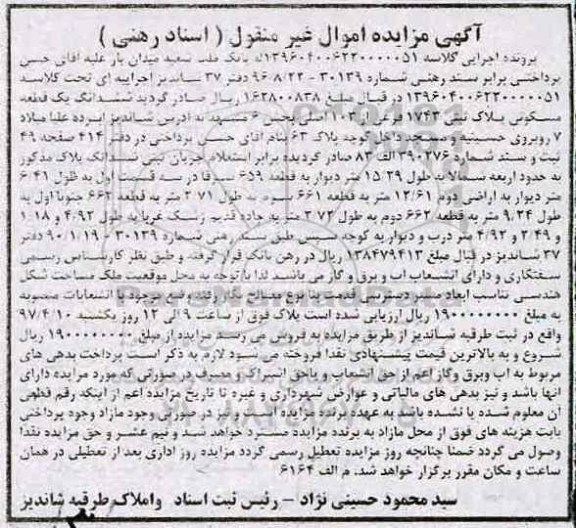 آگهی مزایده اموال غیر منقول ( اسناد رهنی )
پرونده اجرایی کلاسه ۱۳۹۶۰۴۰۰۶۲۳۰۰۰۰۰۵۱له بانک ملت شعبه میدان بار علیه اقای حسن
پرداختی برابر سند رهنی شماره ۳۰۱۳۹ - ۹۶/۸/۲۲ دفتر ۳۷ شاندیز اجراییه ای تحت کلاسه
۱۳۹۶۰۴۰۰۶۲۳۰۰۰۰۰۵۱ در قبال مبلغ ۱۶۳۸۰۰۸۳۸ ریال صادر گردید ششدانگ یک قطعه
مسکونی پلاک ثبتی ۱۷۴۳ فرعی از ۱۰۳ اصلی بخش ۶ مشهد به ادرس شاندیز ابرده علیا میلاد
۷ روبروی حسینیه و مسجد داخل کوچه پلاک ۶۳ بنام اقای حسن پرداختی در دفتر ۴۱۴ صفحه ۴۹
ثبت و سند شماره ۳۹۰۲۷۶ الف ۸۲ صادر گردیده برابر استعلام جریان ثبتی ششدانگ پلاک مذکور
به حدود اربعه شمالا به طول ۱۵/۲۹ متر دیوار به قطعه ۶۵۹ شرقا در سه قسمت اول به طول ۶/۴۱
متر دیوار به اراضی دوم ۱۲/۶۱ متر به قطعه ۶۶۱ سوم به طول ۲/۷۱ متر به قطعه ۶۶۲ جنوبا اول به
طول ۹/۲۴ متر به قطعه ۶۶۲ دوم به طول ۲/۷۲ متر به جاده قدیم زشک غربا به طول ۴/۹۲ و ۱/۱۸
و ۲/۴۹ و ۴/۹۲ متر درب و دیوار به کوچه سپس طبق سند رهنی شماره ۳۰۱۳۹ - ۹۰/۱/۱۹ دفتر
۳۷ شاندیز در قبال مبلغ ۱۳۸۴۷۹۴۱۳ ریال در رهن بانک قرار گرفته و طبق نظر کارشناس رسمی
سفتکاری و دارای انشعاب اب و برق و گاز می باشد لذا با توجه به محل موقعیت ملک مساحت شکل
هندسی تناسب ابعاد مسیر دسترسی قدمت بنا نوع مصالح بکار رفته وضع موجود با انشعابات منصوبه
به مبلغ ۱۹۰۰۰۰۰۰۰۰ ریال ارزیابی شده است پلاک فوق از ساعت ۹ الی ۱۲ روز یکشنبه ۹۷/۴/۱۰
واقع در ثبت طرقبه شاندیز از طریق مزایده به فروش می رسد مزایده از مبلغ ۱۹۰۰۰۰۰۰۰۰ ریال
شروع و به بالاترین قیمت پیشنهادی نقدا فروخته می شود لازم به ذکر است پرداخت بدهی های
مربوط به اب وبرق وگاز اعم از حق انشعاب و یاحق اشتراک و مصرف در صورتی که مورد مزایده دارای
انها باشد و نیز بدهی های مالیاتی و عوارض شهرداری و غیره تا تاریخ مزایده اعم از اینکه رقم قطعی
آن معلوم شده یا نشده باشد به عهده برنده مزایده است و نیز در صورتی وجود مازاد وجوه پرداختی
بابت هزینه های فوق از محل مازاد به برنده مزایده مسترد خواهد شد و نیم عشر و حق مزایده نقدا
وصول می گردد ضمنا چنانچه روز مزایده تعطیل رسمی گردد مزایده روز اداری بعد از تعطیلی در همان
ساعت و مکان مقرر برگزار خواهد شد. م الف ۶۱۶۴
سید محمود حسینی نژاد – رئیس ثبت اسناد واملاک طرقبه شاندیز